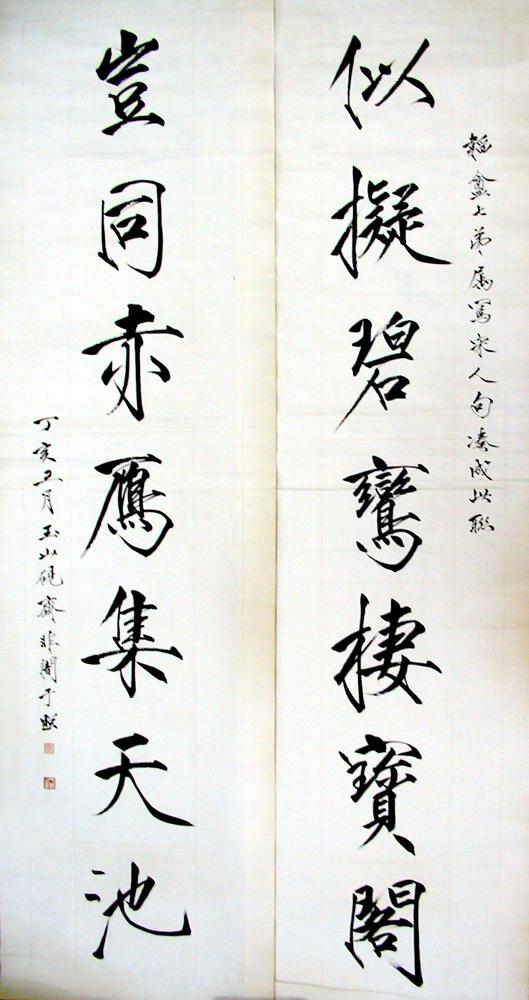 韜盦上弟属写宋人句凑成此联
似擬碧鸞棲寶閣
豈同赤鴈集天池
丁亥五月玉山硯齋非闇于照